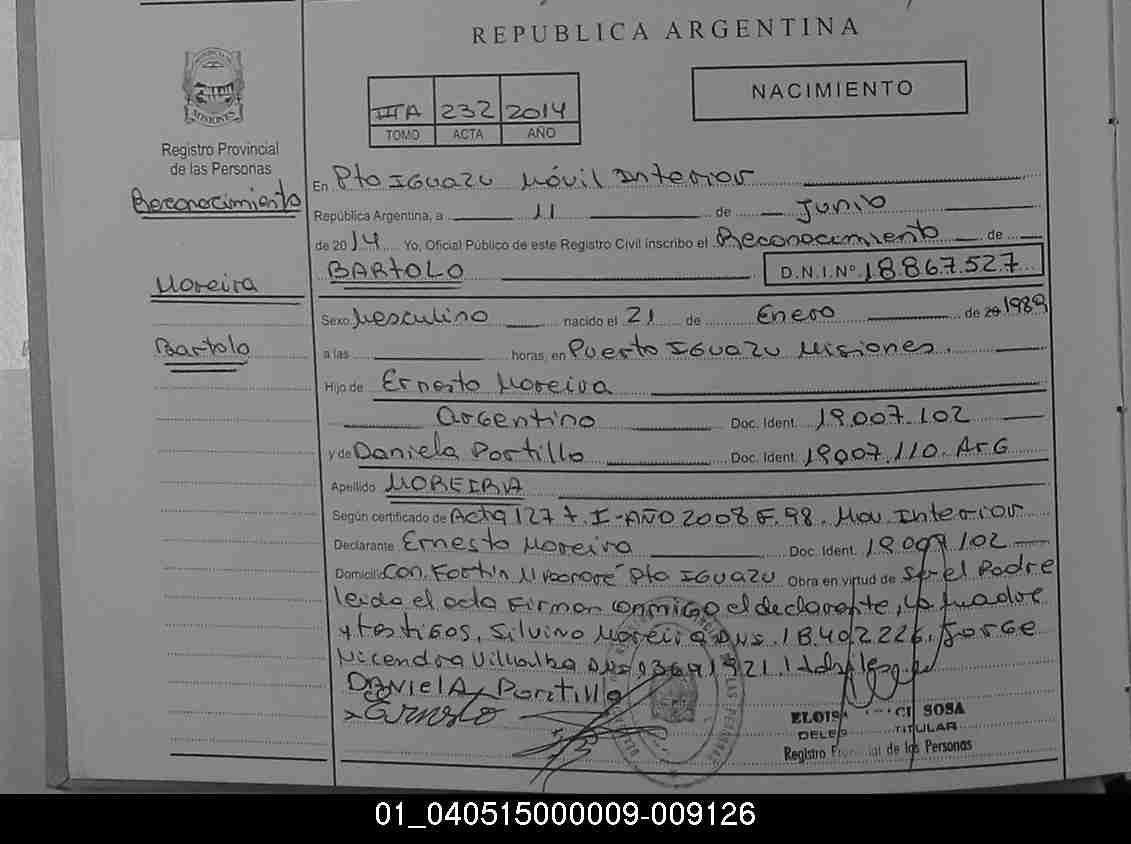 REPUBLICA ARGENTINA
NACIMIENTO
IIIA 232 2014
TOMO ACTA AÑO
MISIONES
Registro Provincial
de las Personas
Reconocimiento
Moreira
Bartolo
En Pto Iguazu Móvil Interior
República Argentina, a 11 de Junio
de 2014 Yo, Oficial Público de este Registro Civil inscribo el Reconocimiento de
BARTOLO D.N.I.Nº 18867.527
Sexo Masculino nacido el 21 de Enero de 20 1989
a las horas, en Puerto Iguazu Misiones.
Hijo de Ernesto Moreira
Argentino Doc. Ident. 19.007.102
y de Daniela Portillo Doc. Ident. 19007.110. Arg
Apellido MOREIRA
Según certificado de Acta 127 t. I-AÑO 2008 F. 98. Mov. Interior
Declarante Ernesto Moreira Doc. Ident. 19.007.102
Domicilio Con. Fortin Pto Iguazu Obra en virtud de Ser el Padre
leida el acta Firman conmigo el declarante, la madre
y testigos, Silvino Moreira 18.402.226, Jorge
Villalba
DANIELA Portillo
Ernesto
SOSA
TITULAR
Registro de las Personas
01_040515000009-009126